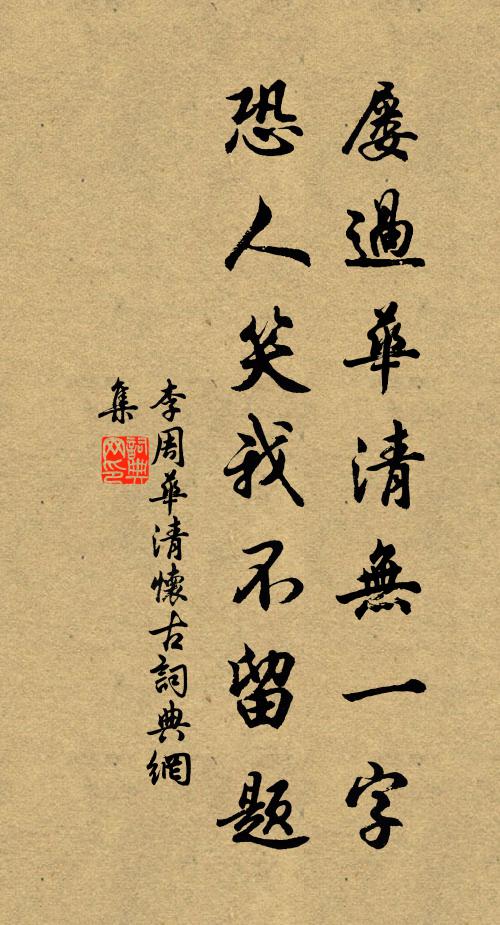 屡過華清無一字
恐人笑我不留題
李周華清懷古詞典網
集
詞典
网印